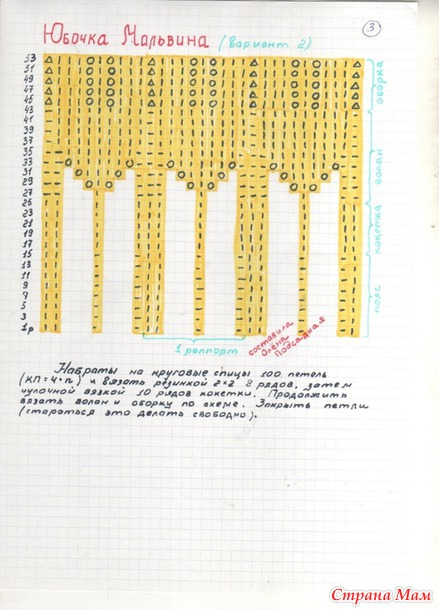 Юбочка Мальвина (вариант 2)
3
53
51
49
47
45
43
41
39
37
35
33
31
29
27
25
23
21
19
17
15
13
11
9
7
5
3
1р
оборка
волан
кокетка
пояс
1 раппорт
составила
Олёна
Подсадная
Набрать на круговые спицы 100 петель
(КП=4·n) и вязать резинкой 2×2 8 рядов, затем
чулочной вязкой 10 рядов кокетки. Продолжить
вязать волан и оборку по схеме. Закрыть петли
(стараться это делать свободно).
Страна Мам